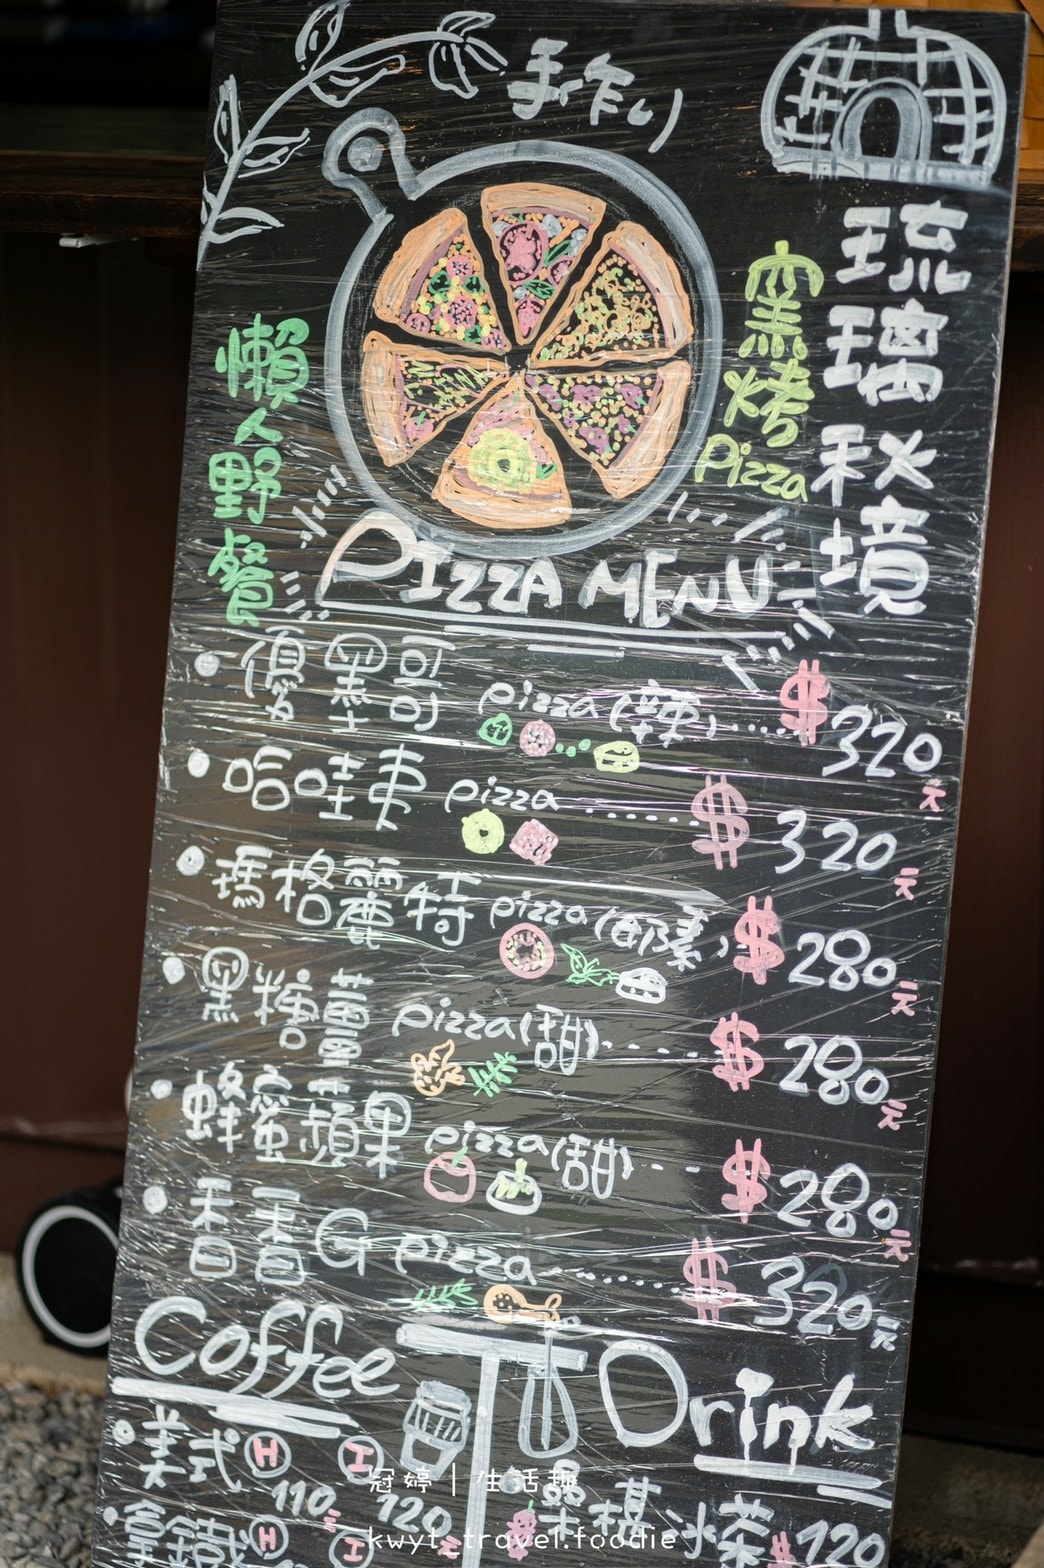 手作り
琉璃秘境
窯烤Pizza
懶人野餐
PIZZA MENU
pizza(葷)......$320元
pizza......$320元
•瑪格麗特pizza(可素)$280元
pizza(甜)....$280元
•蜂蜜蘋果pizza(甜)...$280元
•香香G pizza......$320元
Coffee
Drink
•美式 H 110 I 120
拿鐵 H I
$120
冠婷｜生活趣
kwyt_travel.foodie